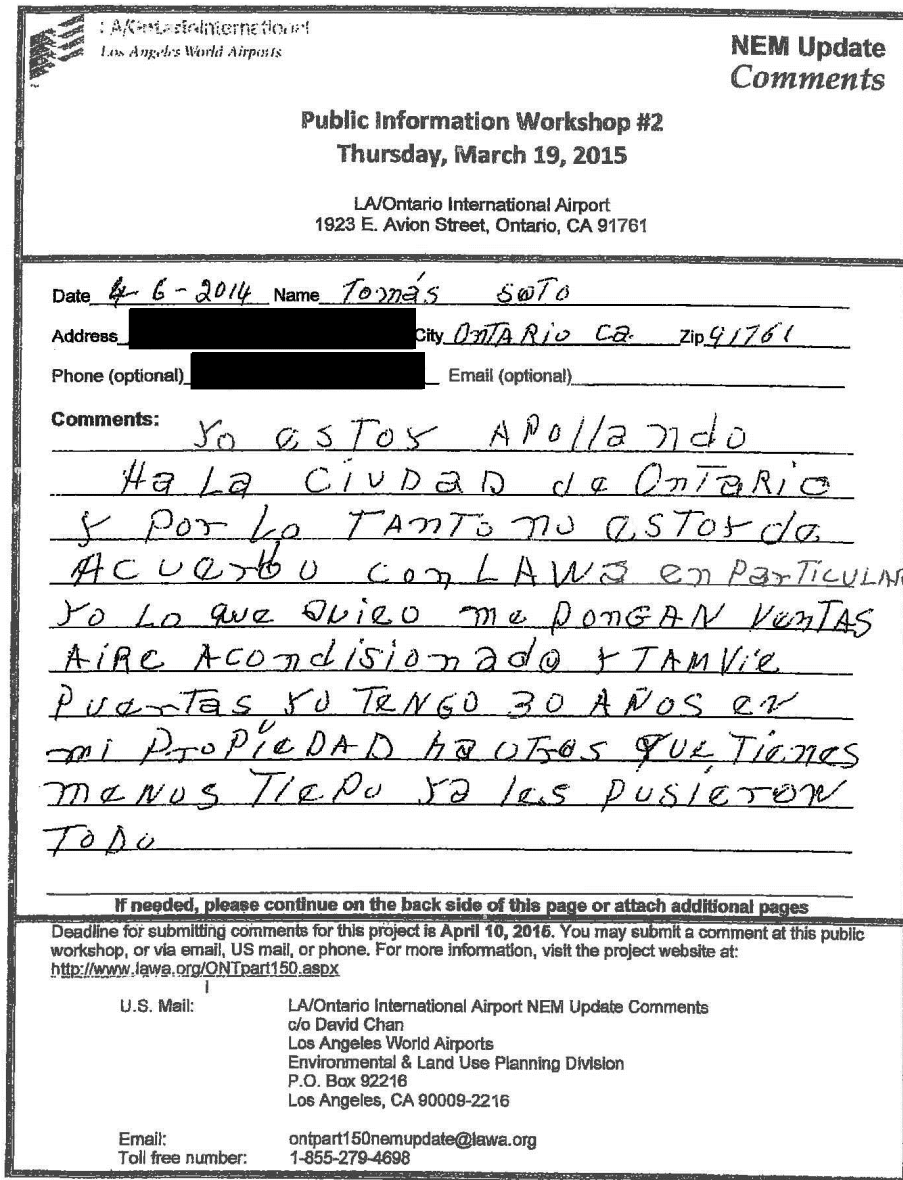 LA/Ontario International
Los Angeles World Airports
NEM Update
Comments
Public Information Workshop #2
Thursday, March 19, 2015
LA/Ontario International Airport
1923 E. Avion Street, Ontario, CA 91761
Date 4-6-2014 Name Tomás Soto
Address City OnTARio Ca. Zip 91761
Phone (optional) Email (optional)
Comments:
Yo esToy APollando
Ha La CiUDaD de OnTaRio
Y Por Lo TAnTo no esToy de
Acuerdo con LAWa en ParTiCULAR
Yo Lo que Quieo me PonGAN VenTAS
AiRe Acondisionado Y TAMVie
PuerTas Yo TENGO 30 AÑOS en
mi ProPieDAD ha oTros que Tienes
menos Tiepo Ya les PusieroN
ToDo
If needed, please continue on the back side of this page or attach additional pages
Deadline for submitting comments for this project is April 10, 2015. You may submit a comment at this public
workshop, or via email, US mail, or phone. For more information, visit the project website at:
http://www.lawa.org/ONTpart150.aspx
U.S. Mail: LA/Ontario International Airport NEM Update Comments
c/o David Chan
Los Angeles World Airports
Environmental & Land Use Planning Division
P.O. Box 92216
Los Angeles, CA 90009-2216
Email: ontpart150nemupdate@lawa.org
Toll free number: 1-855-279-4698